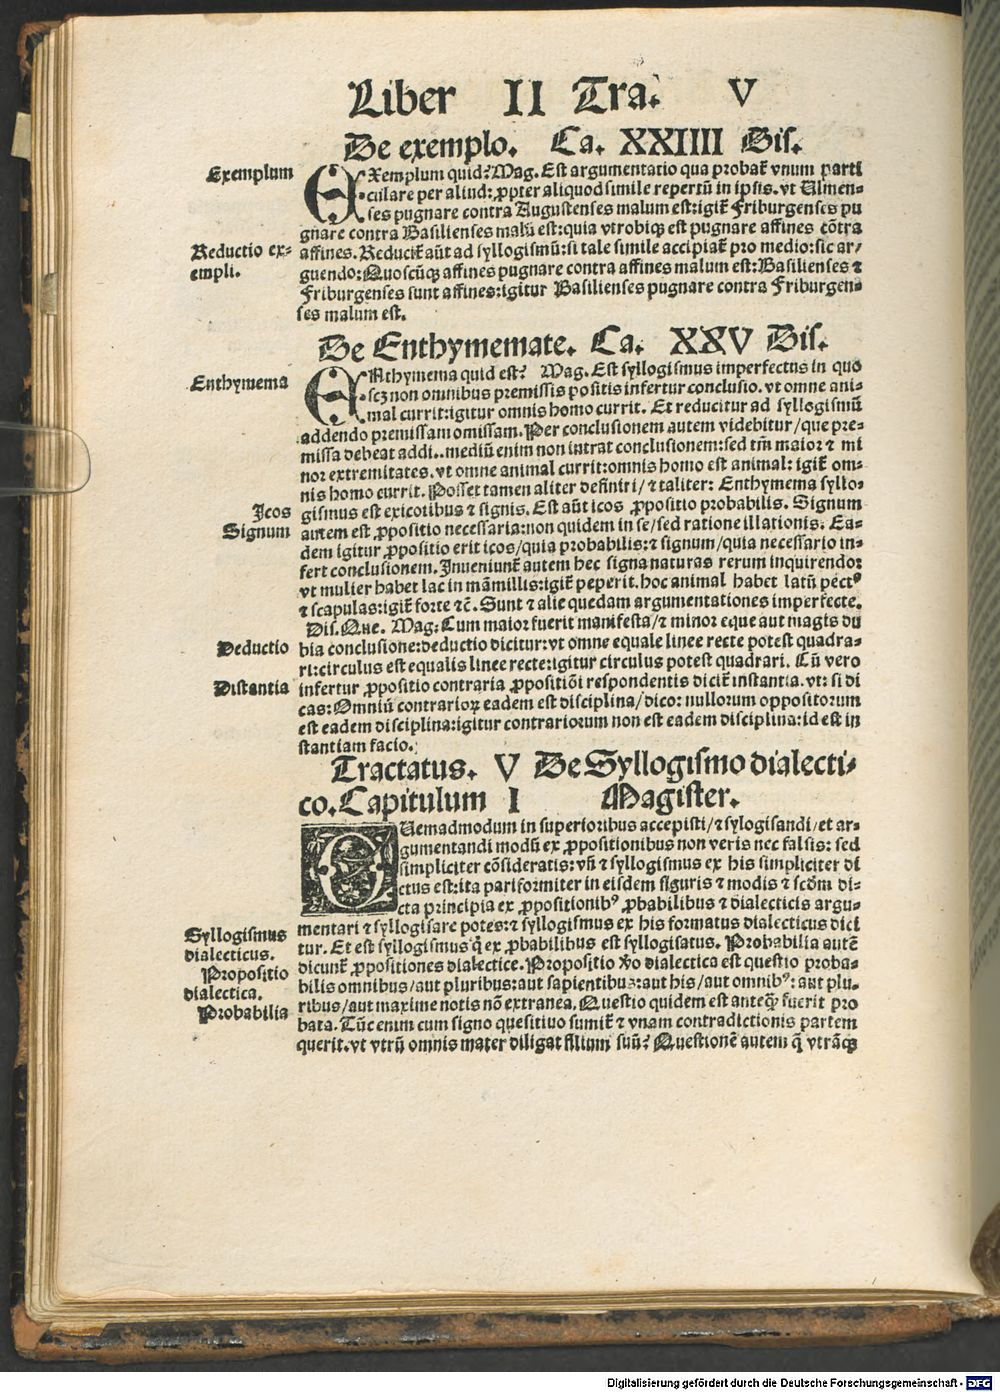 Liber II Tra. V
De exemplo. Ca. XXIIII Dis.
Exemplum
EXemplum quid? Mag. Est argumentatio qua probat̃ vnum parti
culare per aliud: ꝓpter aliquod simile repertũ in ipsis. vt Ulmen-
ses pugnare contra Augustenses malum est: igit̃ Friburgenses pu
gnare contra Basilienses malũ est: quia vtrobiqꝫ est pugnare affines cõtra
Reductio ex-
empli.
affines. Reducit̃ aũt ad syllogismũ: si tale simile accipiat̃ pro medio: sic ar/
guendo: Quoscũqꝫ affines pugnare contra affines malum est: Basilienses ⁊
Friburgenses sunt affines: igitur Basilienses pugnare contra Friburgen-
ses malum est.
De Enthymemate. Ca. XXV Dis.
Enthymema
ENthymema quid est? Mag. Est syllogismus imperfectus in quo
scꝫ non omnibus premissis positis infertur conclusio. vt omne ani-
mal currit: igitur omnis homo currit. Et reducitur ad syllogismũ
addendo premissam omissam. Per conclusionem autem videbitur/ que pre-
missa debeat addi.. mediũ enim non intrat conclusionem: sed tm̃ maior ⁊ mi
nor extremitates. vt omne animal currit: omnis homo est animal: igit̃ om-
nis homo currit. Posset tamen aliter definiri/ ⁊ taliter: Enthymema syllo-
Icos
Signum
gismus est ex icotibus ⁊ signis. Est aũt icos ꝓpositio probabilis. Signum
autem est ꝓpositio necessaria: non quidem in se/ sed ratione illationis. Ea-
dem igitur ꝓpositio erit icos/ quia probabilis: ⁊ signum/ quia necessario in-
fert conclusionem. Inueniunt̃ autem hec signa naturas rerum inquirendo:
vt mulier habet lac in mãmillis: igit̃ peperit. hoc animal habet latũ pectꝰ
⁊ scapulas: igit̃ forte ⁊c̃. Sunt ⁊ alie quedam argumentationes imperfecte.
Dis. Que. Mag: Cum maior fuerit manifesta/ ⁊ minor eque aut magis du
Deductio
bia conclusione: deductio dicitur: vt omne equale linee recte potest quadra-
ri: circulus est equalis linee recte: igitur circulus potest quadrari. Cũ vero
Distantia
infertur ꝓpositio contraria ꝓpositiõi respondentis dicit̃ instantia. vt: si di
cas: Omniũ contrarioꝝ eadem est disciplina/ dico: nullorum oppositorum
est eadem disciplina: igitur contrariorum non est eadem disciplina: id est in
stantiam facio.
Tractatus. V De Syllogismo dialecti-
co. Capitulum I Magister.
QUemadmodum in superioribus accepisti/ ⁊ sylogisandi/ et ar-
gumentandi modũ ex ꝓpositionibus non veris nec falsis: sed
simpliciter cõsideratis: vñ ⁊ syllogismus ex his simpliciter di
ctus est: ita pariformiter in eisdem figuris ⁊ modis ⁊ scdm̃ di-
cta principia ex ꝓpositionibꝰ ꝓbabilibus ⁊ dialecticis argu-
mentari ⁊ syllogisare potes: ⁊ syllogismus ex his formatus dialecticus dici
Syllogismus
dialecticus.
tur. Et est syllogismus q̃ ex ꝓbabilibus est syllogisatus. Probabilia autẽ
dicunt̃ ꝓpositiones dialectice. Propositio ꝟo dialectica est questio proba-
Propositio
dialectica.
bilis omnibus/ aut pluribus: aut sapientibus: aut his/ aut omnibꝰ: aut plu-
ribus/ aut maxime notis nõ extranea. Questio quidem est anteq̃ꝫ fuerit pro
Probabilia
bata. Tũc enim cum signo quesitiuo sumit̃ ⁊ vnam contradictionis partem
querit. vt vtrũ omnis mater diligat filium suũ? Questionẽ autem q̃ vtrãqꝫ
Digitalisierung gefördert durch die Deutsche Forschungsgemeinschaft - DFG